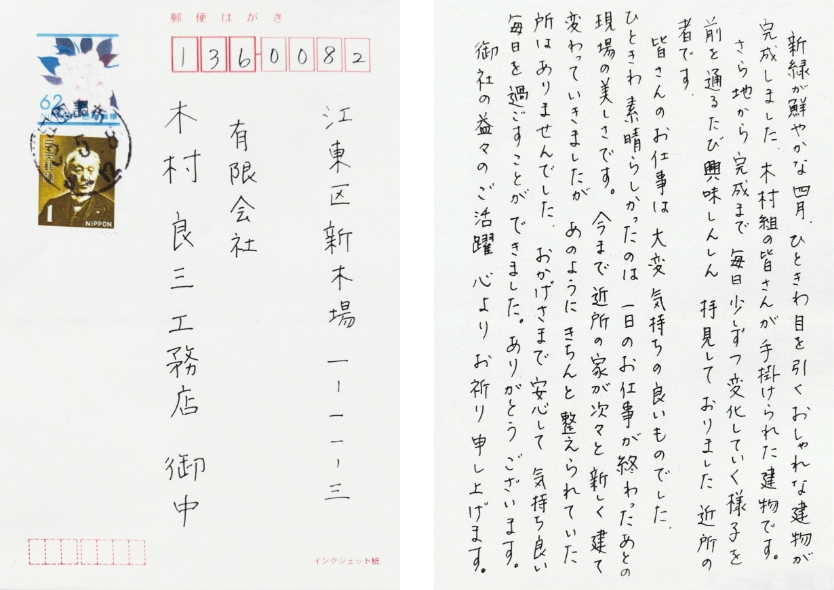 郵便はがき
136-0082
62
1
NIPPON
江東区新木場一ー一ー一ー三
有限会社
木村良三工務店 御中
インクジェット紙
新緑が鮮やかな四月、ひときわ目を引くおしゃれな建物が
完成しました。木村組の皆さんが手掛けられた建物です。
さら地から完成まで毎日少しずつ変化していく様子を
前を通るたび興味しんしん拝見しておりました近所の
者です。
皆さんのお仕事は大変気持ちの良いものでした。
ひときわ素晴らしかったのは一日のお仕事が終わったあとの
現場の美しさです。今まで近所の家が次々と新しく建て
変わっていきましたがあのようにきちんと整えられていた
所はありませんでした。おかげさまで安心して気持ち良い
毎日を過ごすことができました。ありがとうございます。
御社の益々のご活躍心よりお祈り申し上げます。